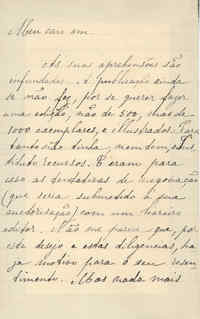 Meu caro am.
As suas aprehensões são
infundadas. A publicação ainda
se não fez, por se querer fazer
uma edição, não de 500, mas de
1000 exemplares, e illustrados. Para
tanto não tinha, nem tem, o Ins
tituto recursos. E eram para
isso as tentativas de negociação
(que seria submettido á sua
auctorisação) com um
editor. Não me parece que, por
este desejo e estas diligencias, ha
ja motivo para o seu resen
timento. Mas nada mais